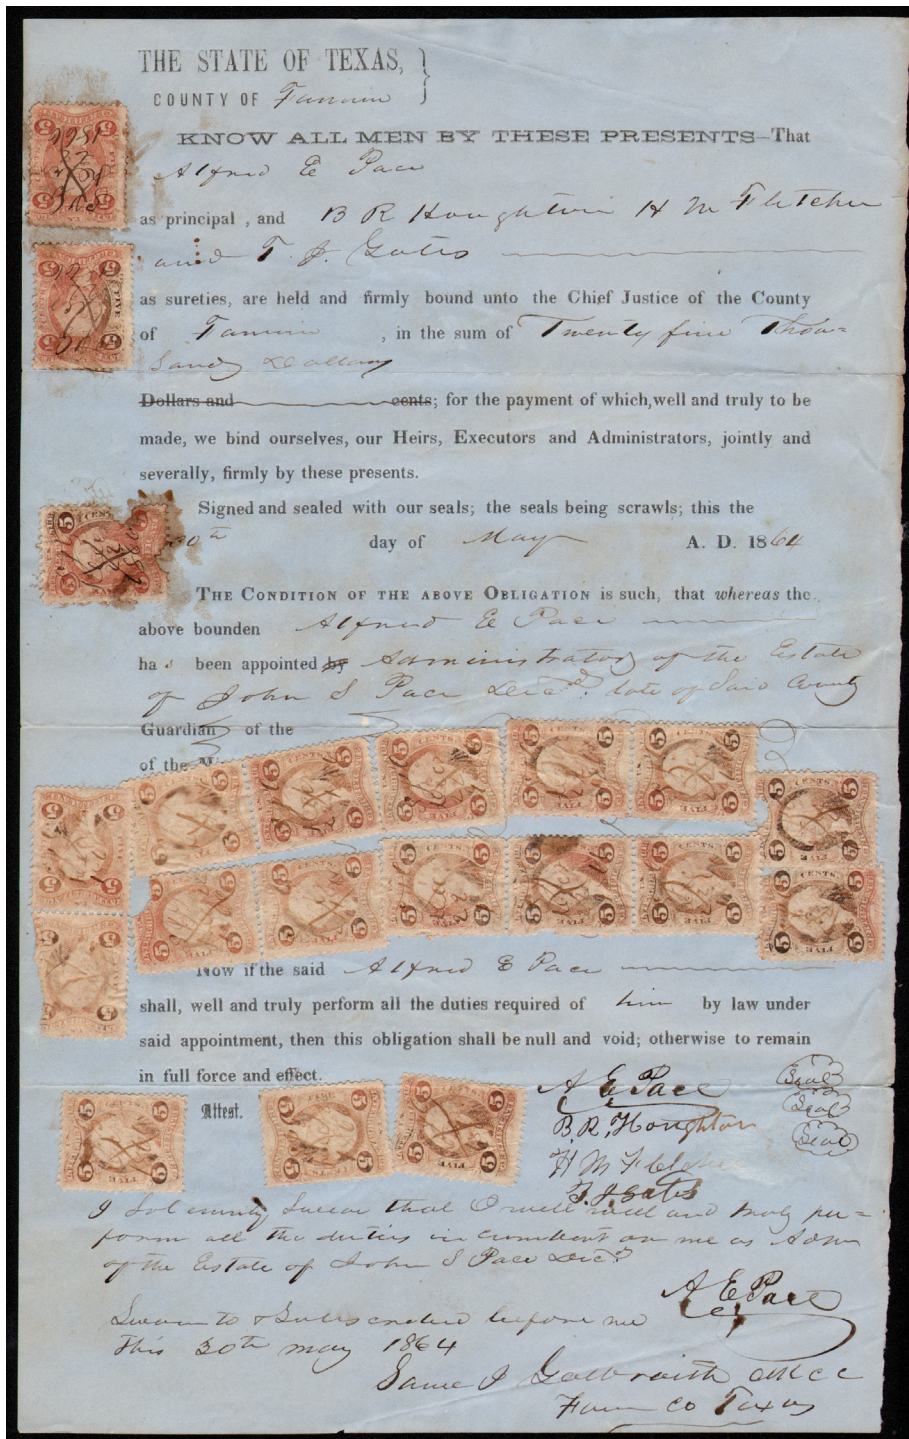 THE STATE OF TEXAS,
COUNTY OF Fannin
KNOW ALL MEN BY THESE PRESENTS—That
Alfred E Pace
as principal, and B R Houghton H M Fletcher
and T. J. Gates
as sureties, are held and firmly bound unto the Chief Justice of the County
of Fannin, in the sum of Twenty five Thou=
sand Dollars
Dollars and cents; for the payment of which, well and truly to be
made, we bind ourselves, our Heirs, Executors and Administrators, jointly and
severally, firmly by these presents.
Signed and sealed with our seals; the seals being scrawls; this the
30th day of May A. D. 1864
THE CONDITION OF THE ABOVE OBLIGATION is such, that whereas the
above bounden Alfred E Pace
has been appointed by Administrator of the Estate
of John S Pace Decd. late of Said County
Guardian of the
of the
Now if the said Alfred E Pace
shall, well and truly perform all the duties required of him by law under
said appointment, then this obligation shall be null and void; otherwise to remain
in full force and effect.
Attest.
A E Pace Seal
B. R. Houghton Seal
H M Fletcher Seal
T. J Gates
I Solemnly Swear that I will well and truly per=
form all the duties incumbent on me as Admr
of the Estate of John S Pace Decd
A E Pace
Sworn to & Subscribed before me
this 30th May 1864
Galbraith
Fann Co Texas